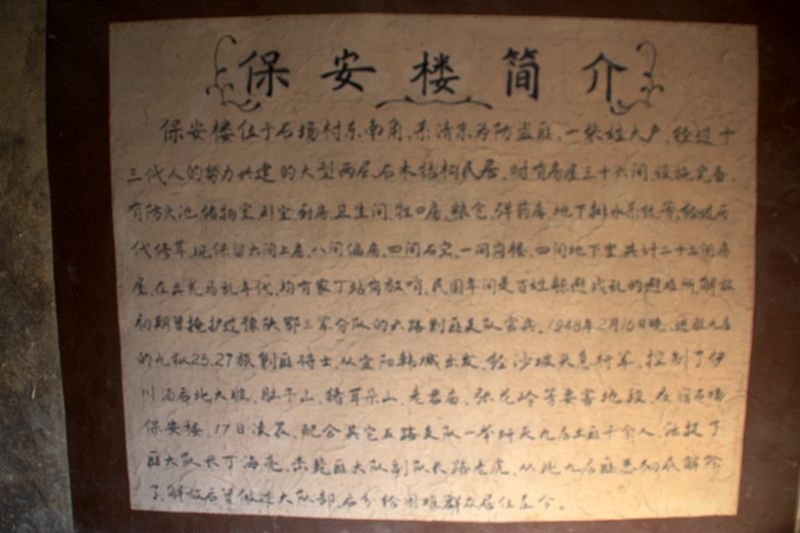 保安楼简介
保安楼位于石场村东南角,系清末为防盗匪,一柴姓大户,经过十
三代人的努力共建的大型两层石木结构民居,时有房屋三十六间,设施完备,
有防火池、储物室、卧室、厨房、卫生间、牲口房、粮仓、弹药库、地下排水系统等,经过历
代修葺,现保留六间上房、八间偏房、四间石窑、一间岗楼、四间地下室,共计二十三间房
屋,在兵荒马乱年代,均有家丁站岗放哨,民国年间是百姓躲避战乱的避难所,解放
初期曾掩护过豫陕鄂三军分队的六路剿匪支队官兵。1948年2月16日晚,进驻九店
的九纵25.27旅剿匪将士,从宜阳韩城出发,经沙坡头急行军,控制了伊
川酒后北大堆、肚子山、猪耳朵山、老君庙、张花岭等要害地段,夜宿石场
保安楼,17日凌晨,配合其它五路支队一举歼灭九店土匪千余人,活捉了
匪大队长丁海亮,击毙匪大队副队长路老虎,从此九店匪患彻底解除
了,解放后曾做过大队部,后分给困难群众居住至今。